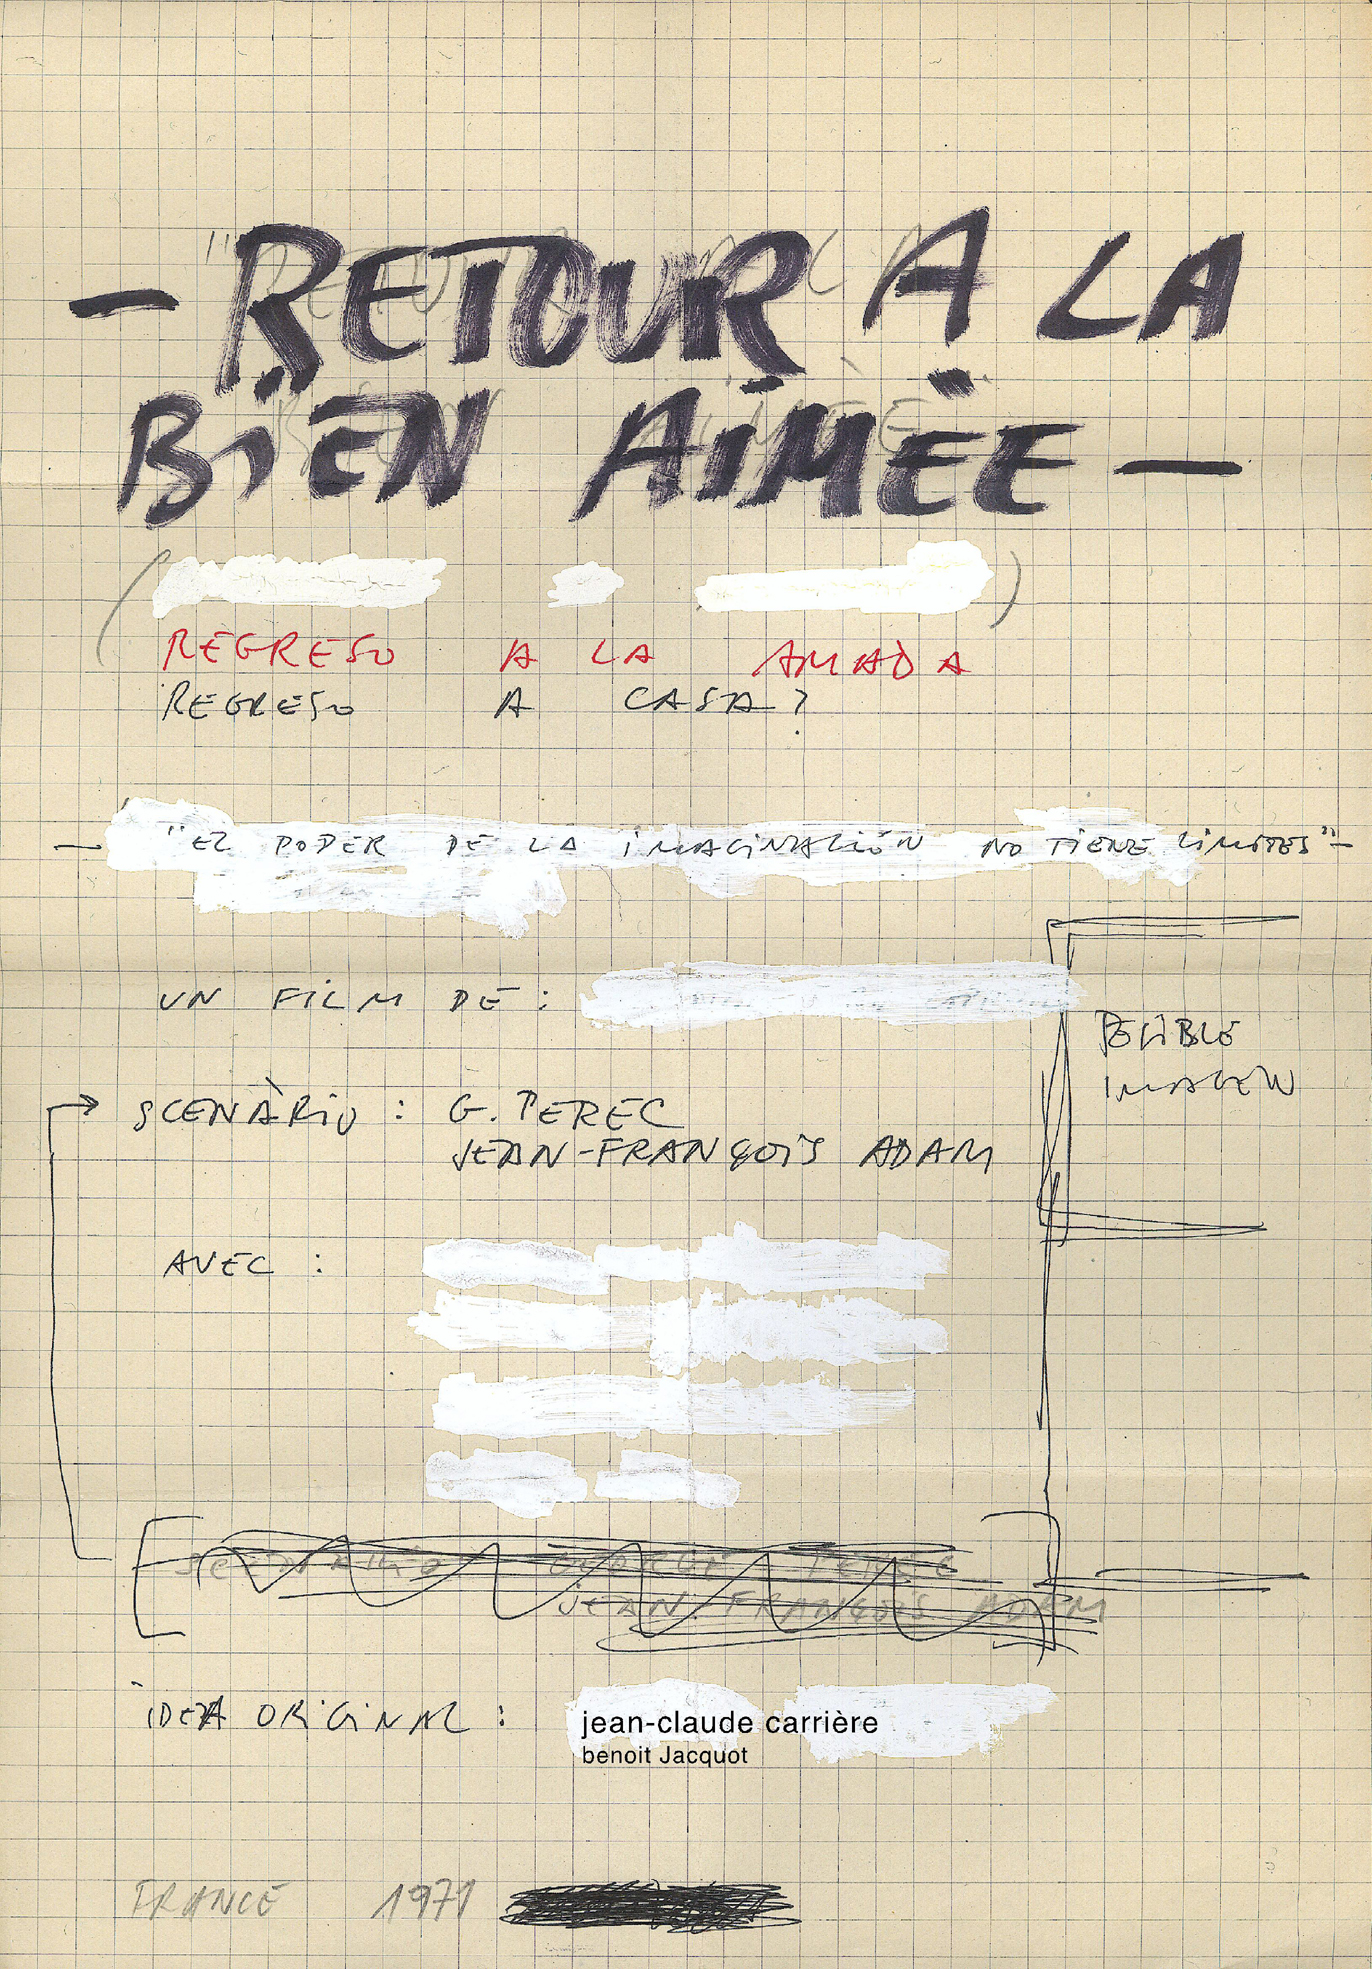 — RETOUR A LA
BIEN AIMÉE —
REGRESO A LA AMADA
REGRESO A CASA?
— "EL PODER DE LA IMAGINACIÓN NO TIENE LIMITES" —
UN FILM DE :
POSIBLE
IMAGEN
SCENÀRIO : G. PEREC
JEAN-FRANÇOIS ADAM
AVEC :
SCENARIO GEORGE PEREC
JEAN-FRANÇOIS ADAM
IDEA ORIGINAL :
jean-claude carrière
benoit Jacquot
FRANCE 1971